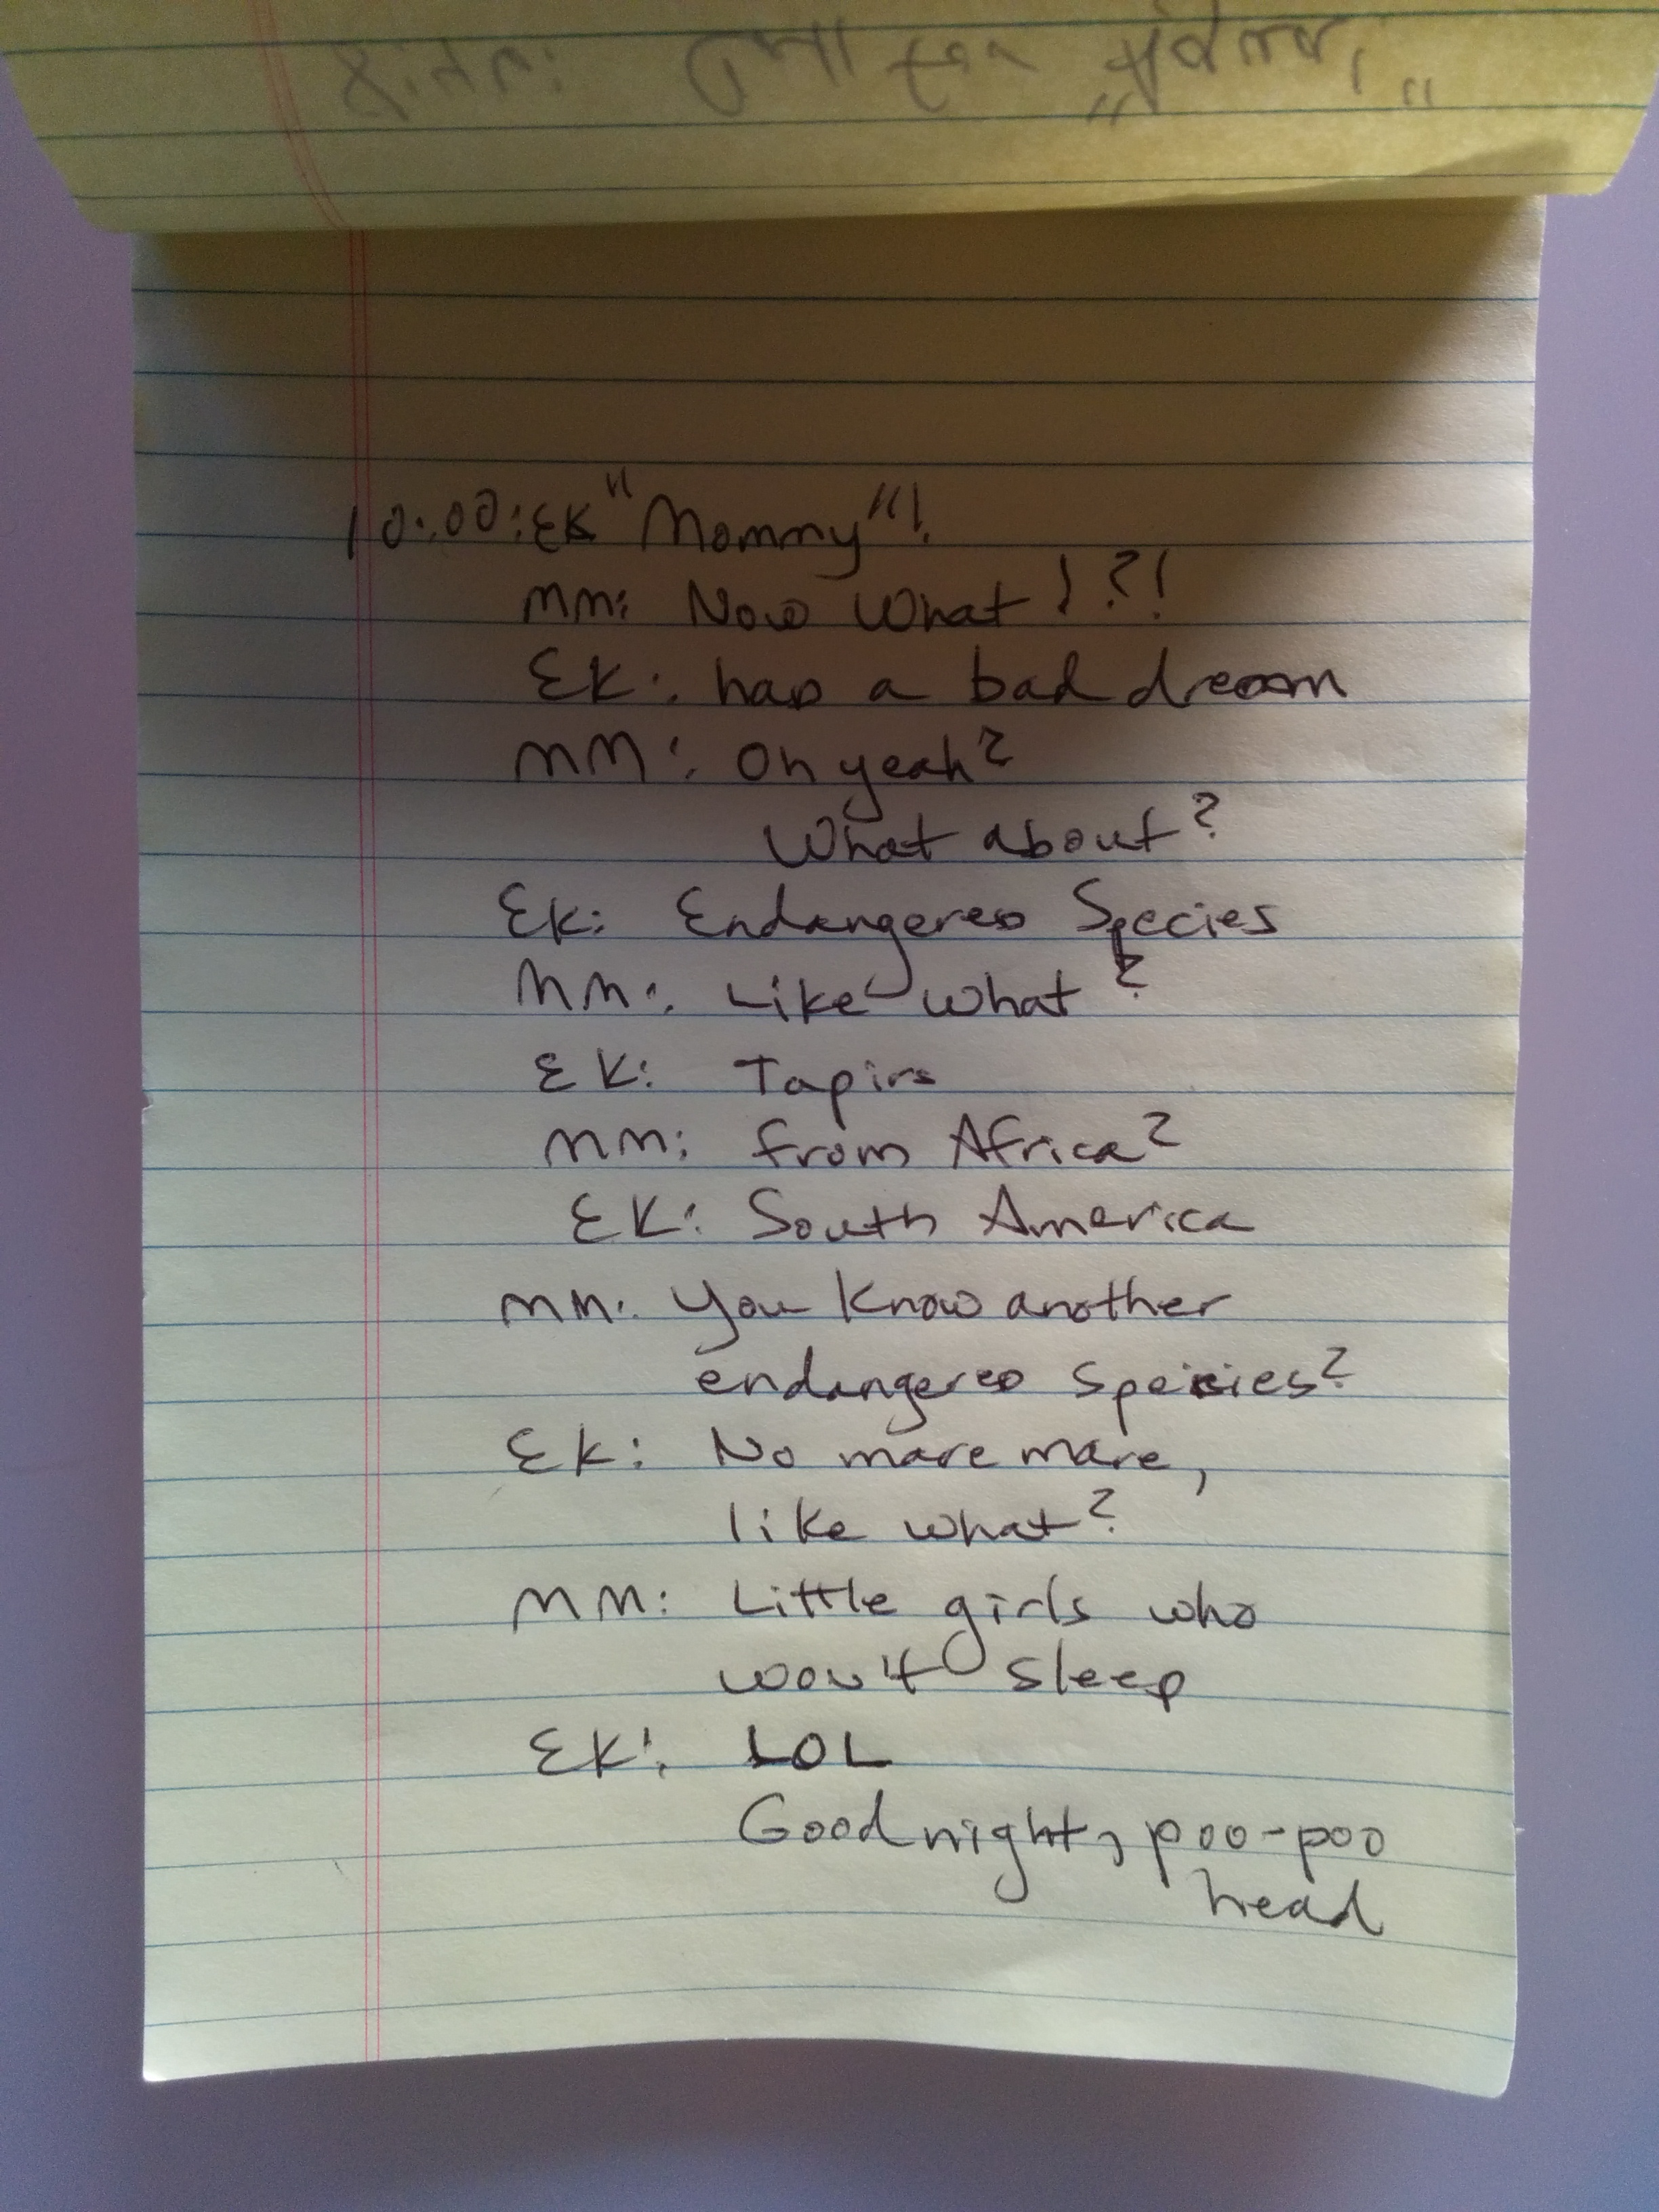 10:00: EK "Mommy"!
MM: Now What!?!
EK: has a bad dream
MM: Oh yeah?
What about?
EK: Endangered Species
MM: Like what?
EK: Tapirs
MM: from Africa?
EK: South America
MM: You know another
endangered species?
EK: No mare mare,
like what?
MM: Little girls who
won't sleep
EK: LOL
Goodnight, poo-poo
head